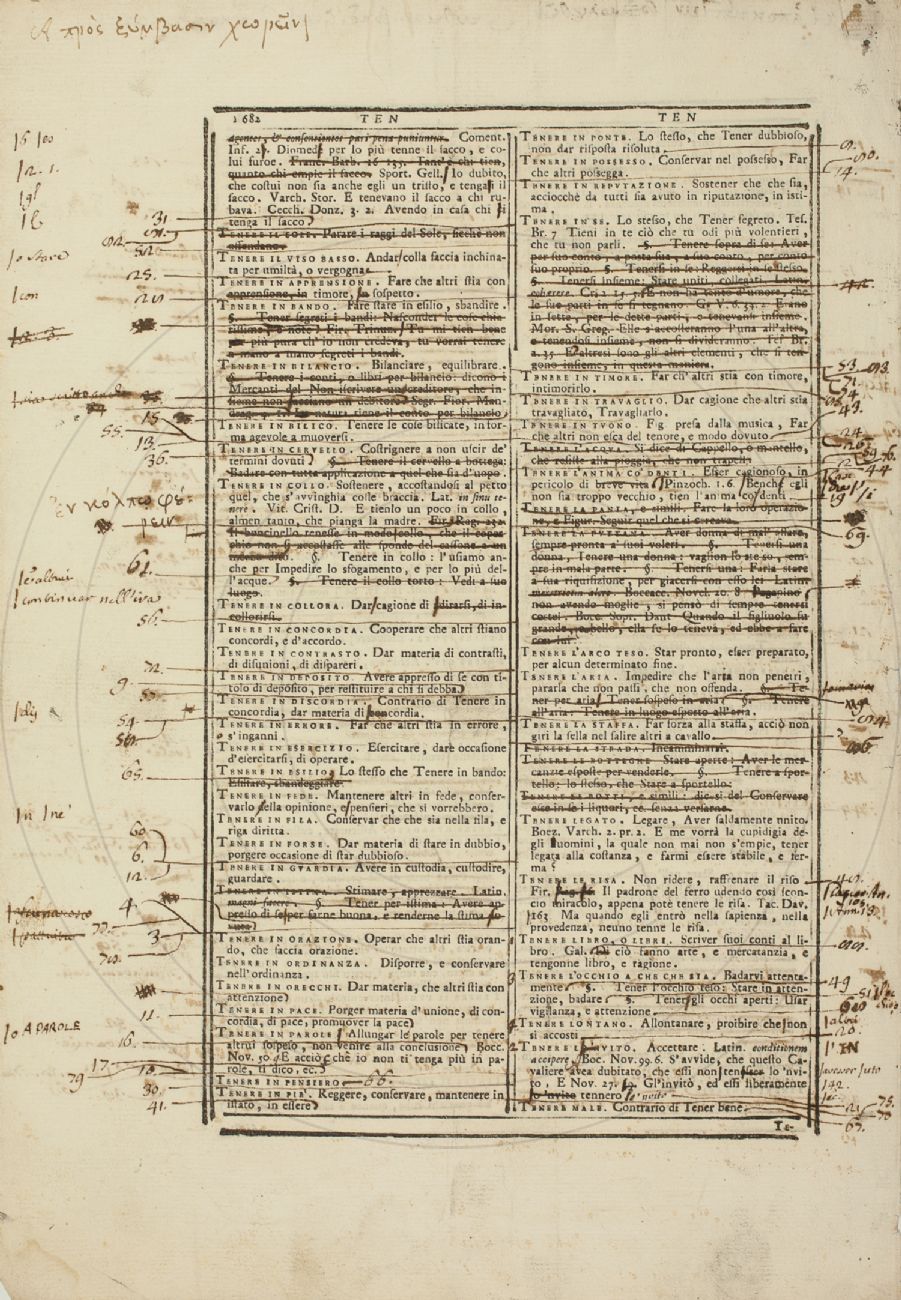 πρὸς ξύμβασιν χωρεῖν
1682 TEN
TEN
agentes, & consentientes pari pena puniuntur. Coment.
Inf. Diomede per lo più tenne il sacco, e co-
lui furoe. Franc. Barb. 16 135. Tant'è chi tien,
quanto chi empie il sacco. Sport. Gell. Io dubito,
che costui non sia anche egli un tristo, e tengasi il
sacco. Varch. Stor. E tenevano il sacco a chi ru-
bava. Cecch. Donz. 3. 2. Avendo in casa chi si
tenga il sacco
TENERE IL SOLE. Parare i raggi del Sole, sicchè non
offendano.
TENERE IL VISO BASSO. Andar colla faccia inchina-
ta per umiltà, o vergogna
TENERE IN APPRENSIONE. Fare che altri stia con
apprensione, in timore, in sospetto.
TENERE IN BANDO. Fare stare in esilio, sbandire.
§. Tener segreti i bandi: Nasconder le cose chia-
rissime, e note. Fir. Trinuz. Tu mi tien bene
per più pura ch'io non credeva, tu vorrai tenere
a mano a mano segreti i bandi.
TENERE IN BILANCIO. Bilanciare, equilibrare.
§. Tenere i conti, o libri per bilancio: dicono i
Mercanti del Non iscrivere un creditore, che in-
sieme non facciano un debitore. Segr. Fior. Man-
drag. La natura tiene il conto per bilancio
TENERE IN BILICO. Tenere le cose bilicate, in for-
ma agevole a muoversi.
TENERE IN CERVELLO. Costrignere a non uscir de'
termini dovuti §. Tenere il cervello a bottega:
Badare con tutta applicazione a quel che sia d'uopo.
TENERE IN COLLO. Sostenere, accostandosi al petto
quel, che s'avvinghia colle braccia. Lat. in sinu te-
nere. Vit. Crist. D. E tienlo un poco in collo,
almen tanto, che pianga la madre. Fir. Rag.
Il buncinello tenesse in modo collo, che il coper-
chio non si accostasse alle sponde del cassone a un
§. Tenere in collo: l'usiamo an-
che per Impedire lo sfogamento, e per lo più del-
l'acque. §. Tenere il collo torto: Vedi a suo
luogo.
TENERE IN COLLORA. Dar cagione di adirarsi, di in-
collorirsi.
TENERE IN CONCORDIA. Cooperare che altri stiano
concordi, e d'accordo.
TENERE IN CONTRASTO. Dar materia di contrasti,
di disunioni, di dispareri.
TENERE IN DEPOSITO. Avere appresso di se con ti-
tolo di deposito, per restituire a chi si debba
TENERE IN DISCORDIA. Contrario di Tenere in
concordia, dar materia di concordia.
TENERE IN ERRORE. Far che altri stia in errore,
s'inganni.
TENERE IN ESERCIZIO. Esercitare, dare occasione
d'esercitarsi, di operare.
TENERE IN ESILIO. Lo stesso che Tenere in bando:
Esiliare, sbandeggiare.
TENERE IN FEDE. Mantenere altri in fede, conser-
varlo nella opinione, e pensieri, che si vorrebbero.
TENERE IN FILA. Conservar che che sia nella fila, e
riga diritta.
TENERE IN FORSE. Dar materia di stare in dubbio,
porgere occasione di star dubbioso.
TENERE IN GUARDIA. Avere in custodia, custodire,
guardare.
TENERE IN ISTIMA. Stimare, apprezzare. Latin.
magni facere. §. Tener per istima: Avere ap-
presso di se per farne buona, e renderne la stima
TENERE IN ORAZIONE. Operar che altri stia oran-
do, che faccia orazione.
TENERE IN ORDINANZA. Disporre, e conservare
nell'ordinanza.
TENERE IN ORECCHI. Dar materia, che altri stia con
attenzione
TENERE IN PACE. Porger materia d'unione, di con-
cordia, di pace, promuover la pace
TENERE IN PAROLE. Allungar le parole per tenere
altrui sospeso, non venire alla conclusione. Bocc.
Nov. 50 E acciò, che io non ti tenga più in pa-
role, ti dico, ec.
TENERE IN PENSIERO 66.
TENERE IN PIE'. Reggere, conservare, mantenere in
istato, in essere
TENERE IN PONTE. Lo stesso, che Tener dubbioso,
non dar risposta risoluta
TENERE IN POSSESSO. Conservar nel possesso, Far
che altri possegga.
TENERE IN REPUTAZIONE. Sostener che che sia,
acciocchè da tutti sia avuto in riputazione, in isti-
ma.
TENERE IN SE. Lo stesso, che Tener segreto. Tes.
Br. 7 Tieni in te ciò che tu odi più volentieri,
che tu non parli. §. Tenere sopra di se: Aver
per suo conto, a posta sua, a suo conto, per conto
suo proprio. §. Tenersi in se: Reggersi in se stesso.
§. Tenersi insieme: Stare uniti, collegati. Latin.
coherere. Cr. 2 15. 7. E non ha tanto d'umore, che
le sue parti in se si tegnano. Gr. V. 6. 33. E ano
in sette, per le dette parti, e tenevansi insieme.
Mor. S. Greg. Elle s'accolleranno l'una all'altra,
e tenendosi insieme, non si divideranno. Tes. Br.
2. 35. E altresì sono gli altri elementi, che si ten-
gono insieme, in questa maniera.
TENERE IN TIMORE. Far ch'altri stia con timore,
intimorirlo.
TENERE IN TRAVAGLIO. Dar cagione che altri stia
travagliato, Travagliarlo.
TENERE IN TUONO. Fig. presa dalla musica, Far
che altri non esca del tenore, e modo dovuto
TENERE L'ACQUA. Si dice di Cappello, o mantello,
che resiste alla pioggia, che non trapeli.
TENERE L'ANIMA CO' DENTI. Esser cagionoso, in
pericolo di breve vita Pinzoch. 1. 6. Benchè egli
non sia troppo vecchio, tien l'anima co' denti.
TENERE LA PANIA, e simili. Fare la loro operazio-
ne, e Figur. Seguir quel che si cercava.
TENERE LA PUTTANA. Aver donna di mal'affare,
sempre pronta a' suoi voleri. §. Tenersi una
donna, Tenere una donna: vaglion lo stesso, sem-
pre in mala parte. §. Tenersi una: Farla stare
a sua riquisizione, per giacersi con esso lei Latin.
Boccacc. Novel. 20. 8 Paganino
non avendo moglie, si pensò di sempre tenersi
costei. Bocc. Sopr. Dant Quando il figliuolo fu
grande, e bello, ella se lo teneva, ed ebbe a fare
con lui.
TENERE L'ARCO TESO. Star pronto, esser preparato,
per alcun determinato fine.
TENERE L'ARIA. Impedire che l'aria non penetri,
pararla che non passi, che non offenda. §. Te-
ner per aria, Tener sospeso in aria §. Tenere
all'aria: Tenere in luogo esposto all'aria.
TENERE LA STAFFA. Far forza alla staffa, acciò non
giri la sella nel salire altri a cavallo
TENERE LA STRADA. Incamminarsi.
TENERE LE BOTTEGHE. Stare aperte: Aver le mer-
canzie esposte per venderle. §. Tenere a spor-
tello: lo stesso, che Stare a sportello.
TENERE LE BOTTI, e simili: dicesi del Conservare
esse in se i liquori, ec. senza versarne.
TENERE LEGATO. Legare, Aver saldamente unito.
Boez. Varch. 2. pr. 2. E me vorrà la cupidigia de-
gli uomini, la quale non mai non s'empie, tener
legata alla costanza, e farmi essere stabile, e fer-
ma?
TENERE LE RISA. Non ridere, raffrenare il riso
Fir. Il padrone del ferro udendo così scon-
cio miracolo, appena potè tenere le risa. Tac. Dav.
163 Ma quando egli entrò nella sapienza, nella
provedenza, neuno tenne le risa.
TENERE LIBRO, O LIBRI. Scriver suoi conti al li-
bro. Gal. Di ciò fanno arte, e mercatanzia, e
tengonne libro, e ragione.
TENERE L'OCCHIO A CHE CHE SIA. Badarvi attenta-
mente §. Tener l'occhio teso: Stare in atten-
zione, badare §. Tener gli occhi aperti: Usar
vigilanza, e attenzione
TENERE LONTANO. Allontanare, proibire che non
si accosti
TENERE L'INVITO. Accettare. Latin. conditionem
accipere. Boc. Nov. 99. 6. S'avvide, che questo Ca-
valiere avea dubitato, che essi non tenessero lo 'nvi-
to, E Nov. 27. Gl'invitò, ed essi liberamente
lo 'nvito tennero
TENERE MALE. Contrario di Tener bene.
Te-
31.
52.
25.
20.
15.
55.
13.
36.
ἐν κόλπῳ φέ-
ρειν
61.
72.
9.
54.
65.
60.
6.
4.
3
11
A PAROLE
16.
17.
79
30.
41.
14.
53.
71.
43.
24
44
69.
49
20.
IN
75.
67.